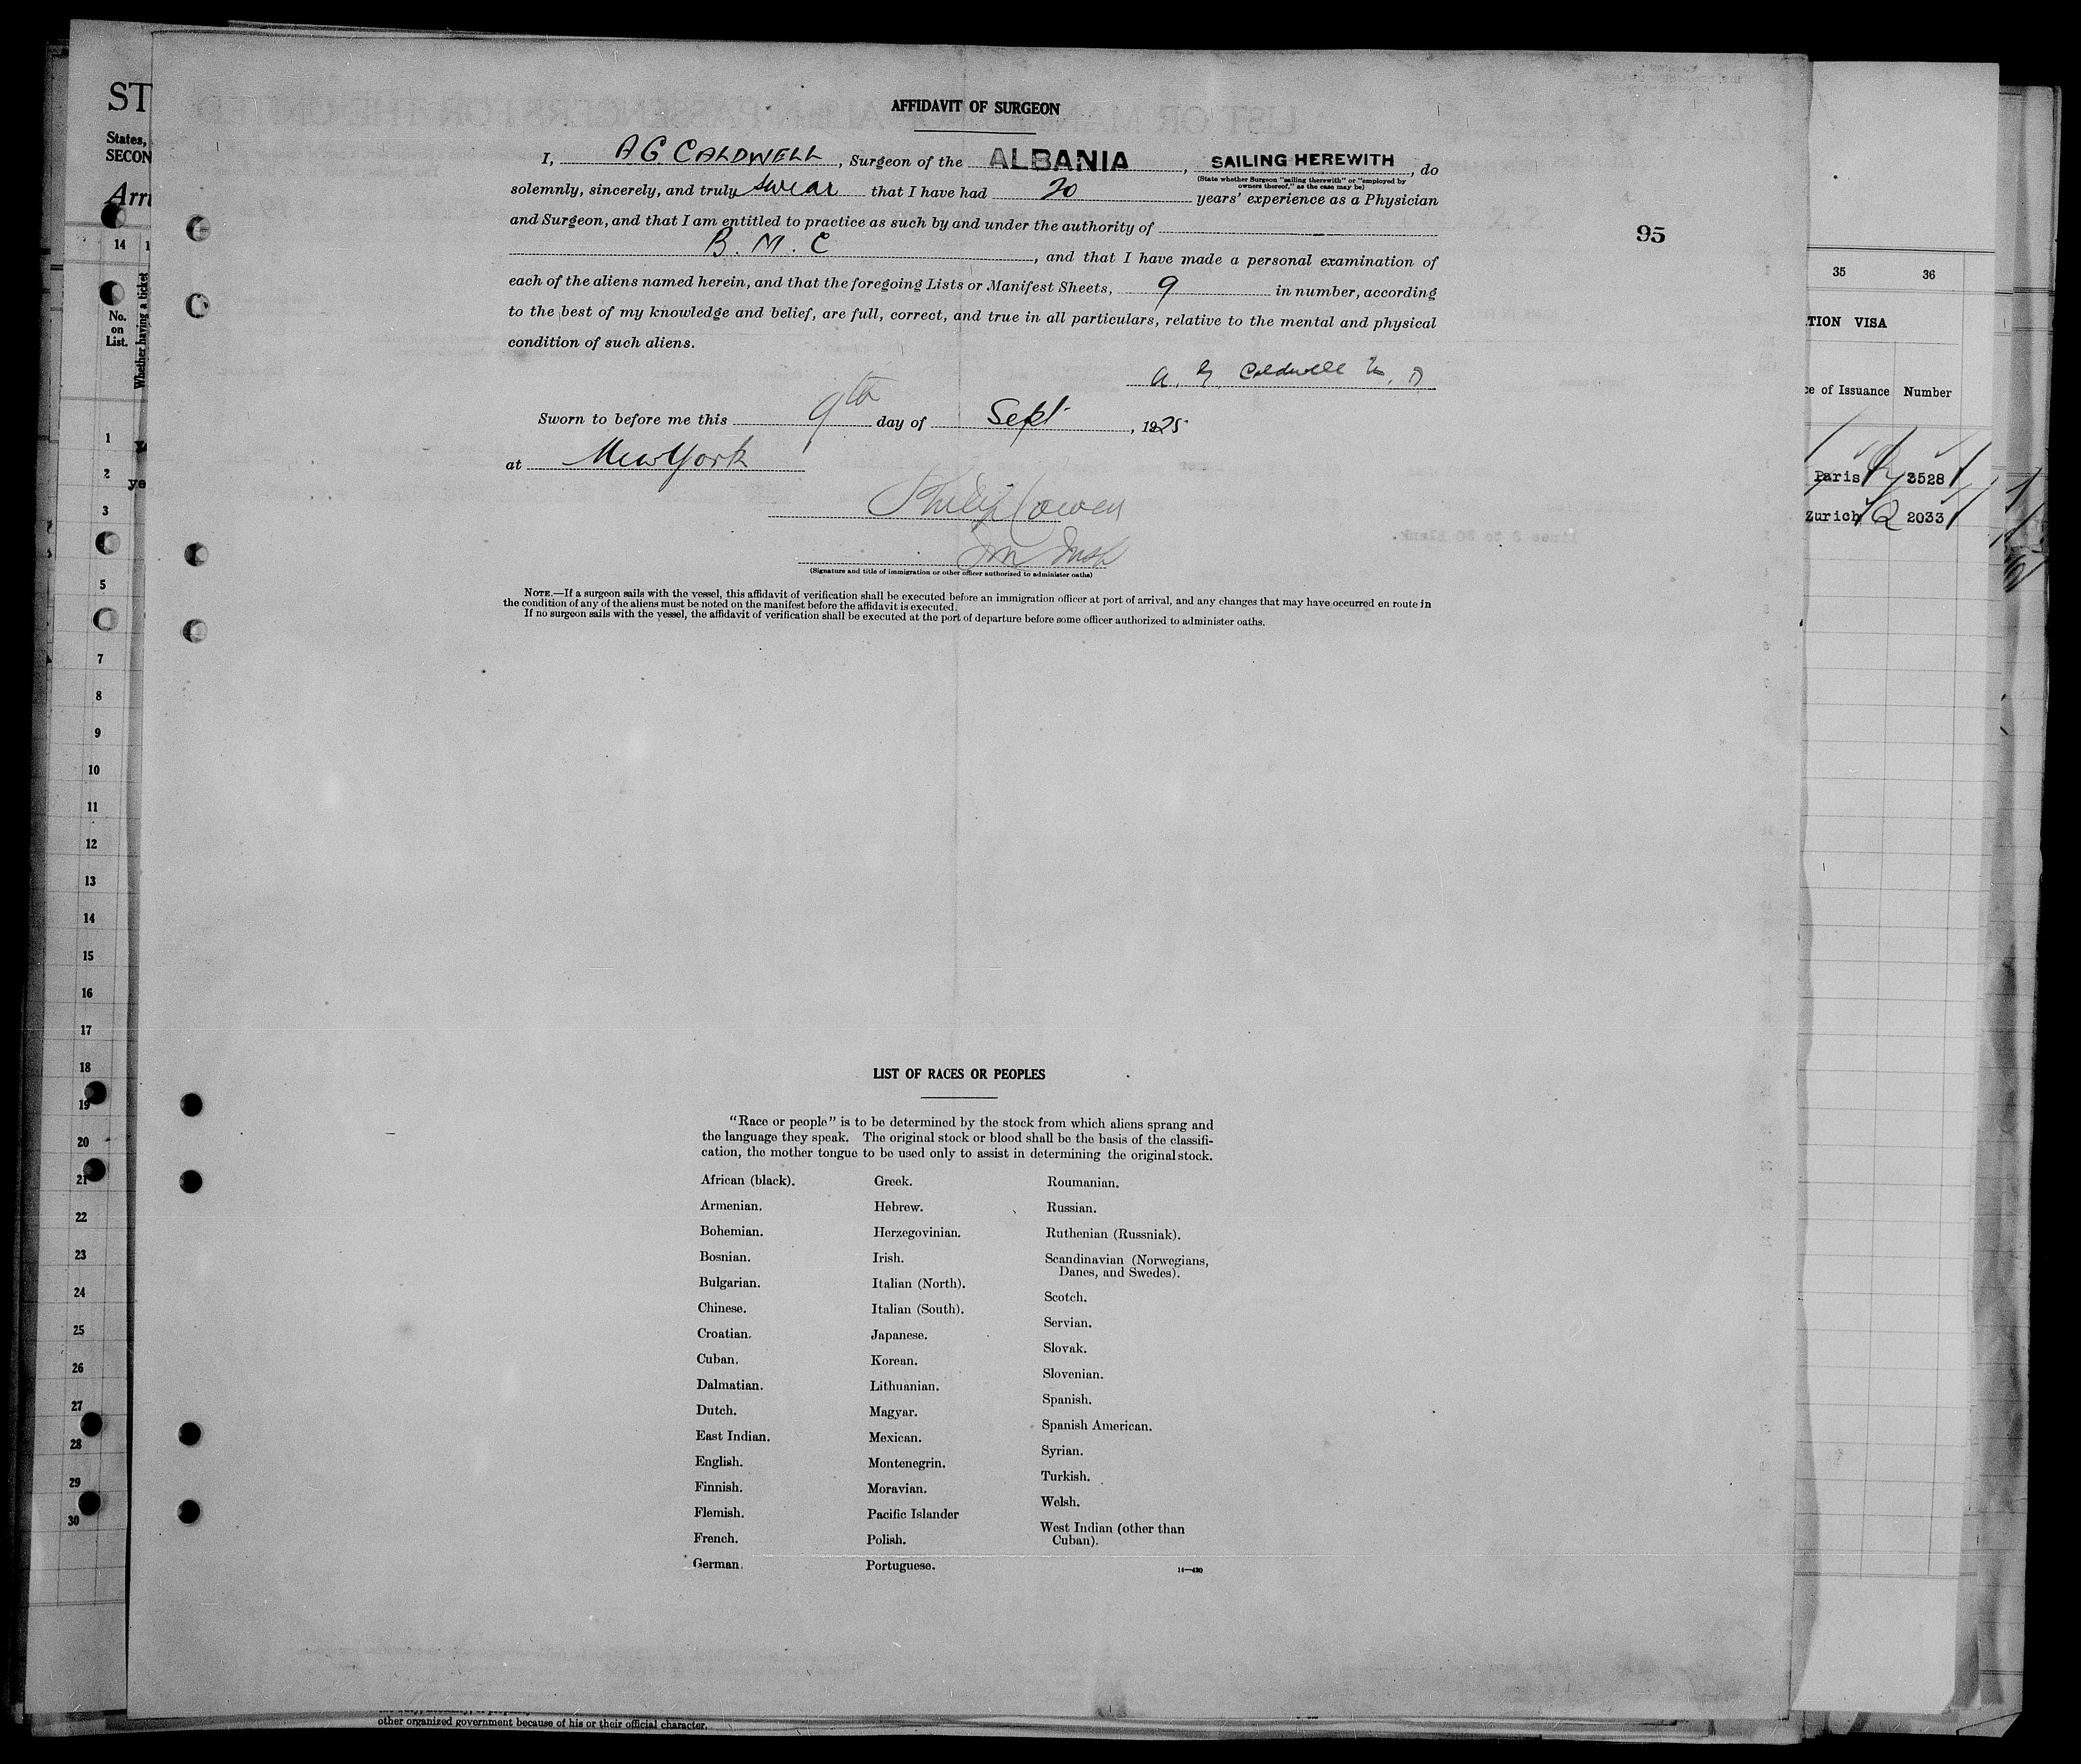 AFFIDAVIT OF SURGEON
I, A G CALDWELL, Surgeon of the ALBANIA, SAILING HEREWITH, do
(State whether Surgeon "sailing therewith" or "employed by
owners thereof," as the case may be)
solemnly, sincerely, and truly swear that I have had 20 years' experience as a Physician
and Surgeon, and that I am entitled to practice as such by and under the authority of
B. M. C, and that I have made a personal examination of
each of the aliens named herein, and that the foregoing Lists or Manifest Sheets, 9 in number, according
to the best of my knowledge and belief, are full, correct, and true in all particulars, relative to the mental and physical
condition of such aliens.
A. G Caldwell M. D
Sworn to before me this 9th day of Sept, 1925
at New York
Philip Cowen
Im Insp
(Signature and title of immigration or other officer authorized to administer oaths)
NOTE.—If a surgeon sails with the vessel, this affidavit of verification shall be executed before an immigration officer at port of arrival, and any changes that may have occurred en route in
the condition of any of the aliens must be noted on the manifest before the affidavit is executed.
If no surgeon sails with the vessel, the affidavit of verification shall be executed at the port of departure before some officer authorized to administer oaths.
95
LIST OF RACES OR PEOPLES
"Race or people" is to be determined by the stock from which aliens sprang and
the language they speak. The original stock or blood shall be the basis of the classifi-
cation, the mother tongue to be used only to assist in determining the original stock.
African (black).
Armenian.
Bohemian.
Bosnian.
Bulgarian.
Chinese.
Croatian.
Cuban.
Dalmatian.
Dutch.
East Indian.
English.
Finnish.
Flemish.
French.
German.
Greek.
Hebrew.
Herzegovinian.
Irish.
Italian (North).
Italian (South).
Japanese.
Korean.
Lithuanian.
Magyar.
Mexican.
Montenegrin.
Moravian.
Pacific Islander
Polish.
Portuguese.
Roumanian.
Russian.
Ruthenian (Russniak).
Scandinavian (Norwegians,
Danes, and Swedes).
Scotch.
Servian.
Slovak.
Slovenian.
Spanish.
Spanish American.
Syrian.
Turkish.
Welsh.
West Indian (other than
Cuban).
14—430
ST
States,
SECON
Arri
14
No.
on
List.
Whether having a ticket
1
2
ye
3
5
7
8
9
10
11
12
13
14
15
16
17
18
19
20
21
22
23
24
25
26
27
28
29
30
35 36
TION VISA
ce of Issuance Number
Paris 3528
Zurich 2033
other organized government because of his or their official character.